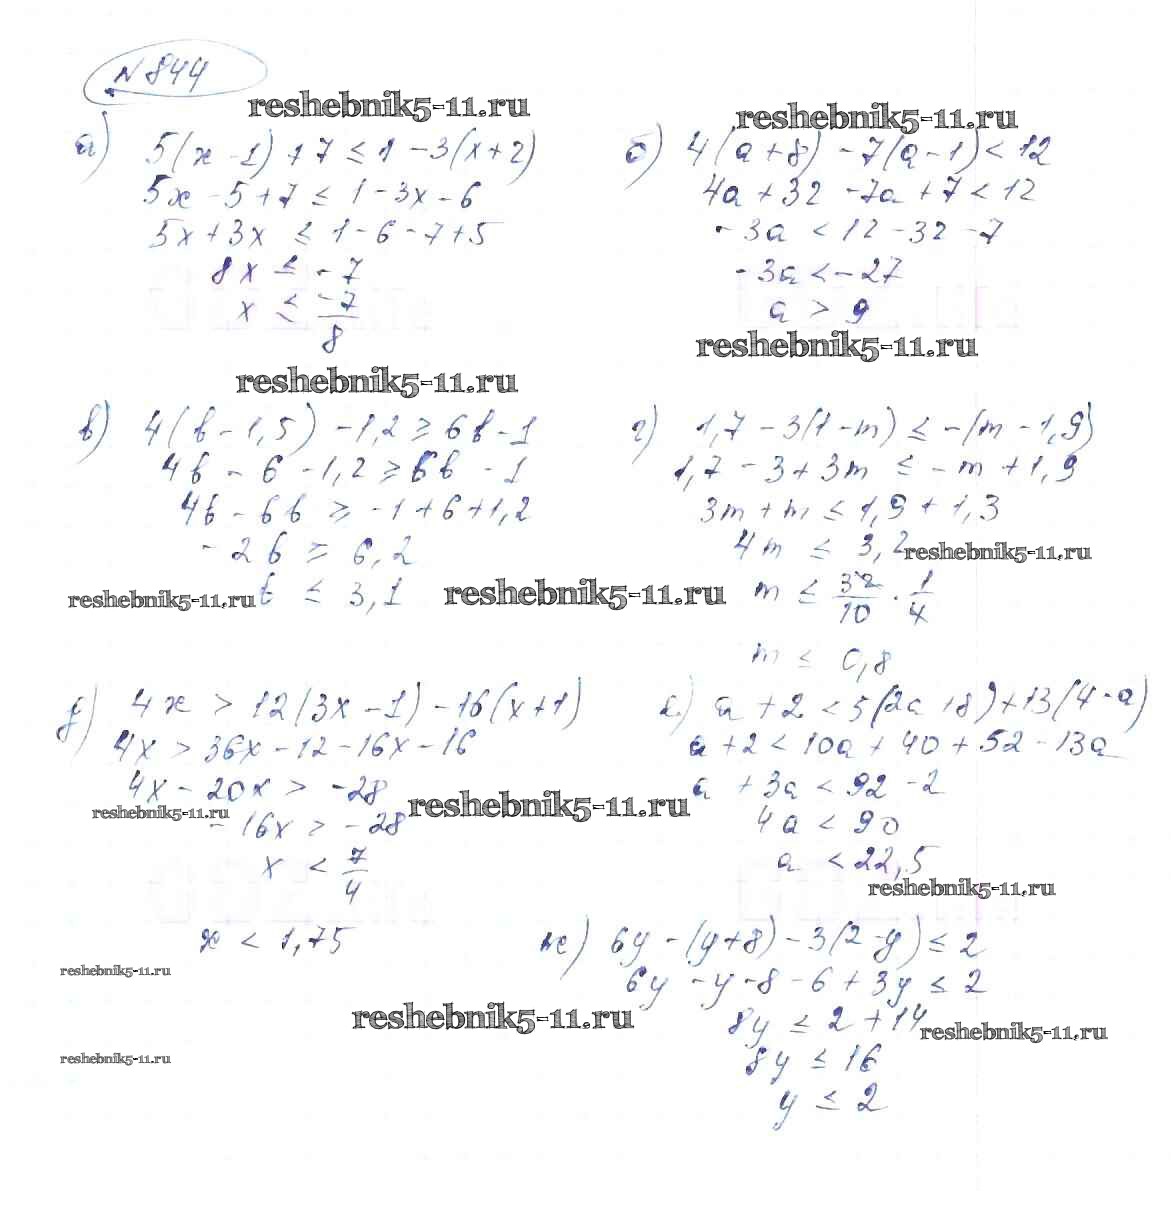 № 844
reshebnik5-11.ru
reshebnik5-11.ru
а) 5(x-1)+7 ≤ 1-3(x+2)
5x-5+7 ≤ 1-3x-6
5x+3x ≤ 1-6-7+5
8x ≤ -7
x ≤ -7/8
б) 4(a+8)-7(a-1)<12
4a+32-7a+7<12
-3a<12-32-7
-3a<-27
a > 9
reshebnik5-11.ru
reshebnik5-11.ru
в) 4(b-1,5)-1,2 ≥ 6b-1
4b-6-1,2 ≥ 6b-1
4b-6b ≥ -1+6+1,2
-2b ≥ 6,2
reshebnik5-11.ru b ≤ 3,1
reshebnik5-11.ru
г) 1,7-3(1-m) ≤ -(m-1,9)
1,7-3+3m ≤ -m+1,9
3m+m ≤ 1,9+1,3
4m ≤ 3,2
reshebnik5-11.ru
m ≤ 32/10 · 1/4
m ≤ 0,8
д) 4x > 12(3x-1)-16(x+1)
4x > 36x-12-16x-16
4x-20x > -28
reshebnik5-11.ru
reshebnik5-11.ru
-16x > -28
x < 7/4
x < 1,75
е) a+2<5(2a+8)+13(4-a)
a+2<10a+40+52-13a
a+3a<92-2
4a<90
a<22,5
reshebnik5-11.ru
ж) 6y-(y+8)-3(2-y) ≤ 2
6y-y-8-6+3y ≤ 2
8y ≤ 2+14
8y ≤ 16
y ≤ 2
reshebnik5-11.ru
reshebnik5-11.ru
reshebnik5-11.ru
reshebnik5-11.ru